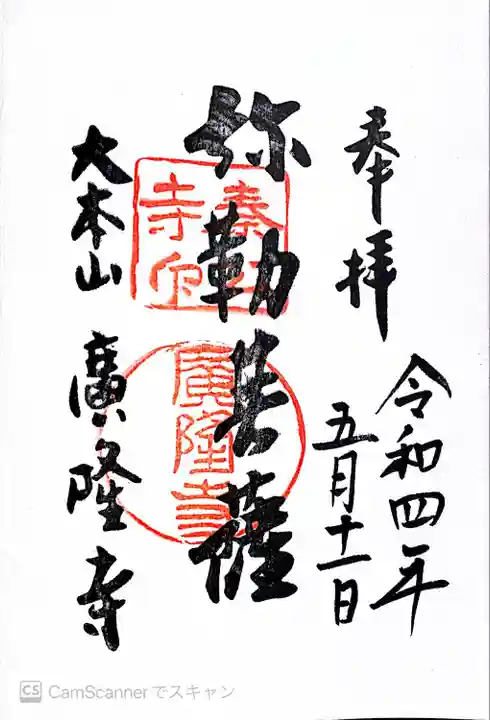 奉拝
令和四年
五月十一日
弥勒菩薩
大本山 廣隆寺
廣隆寺
CS CamScanner でスキャン